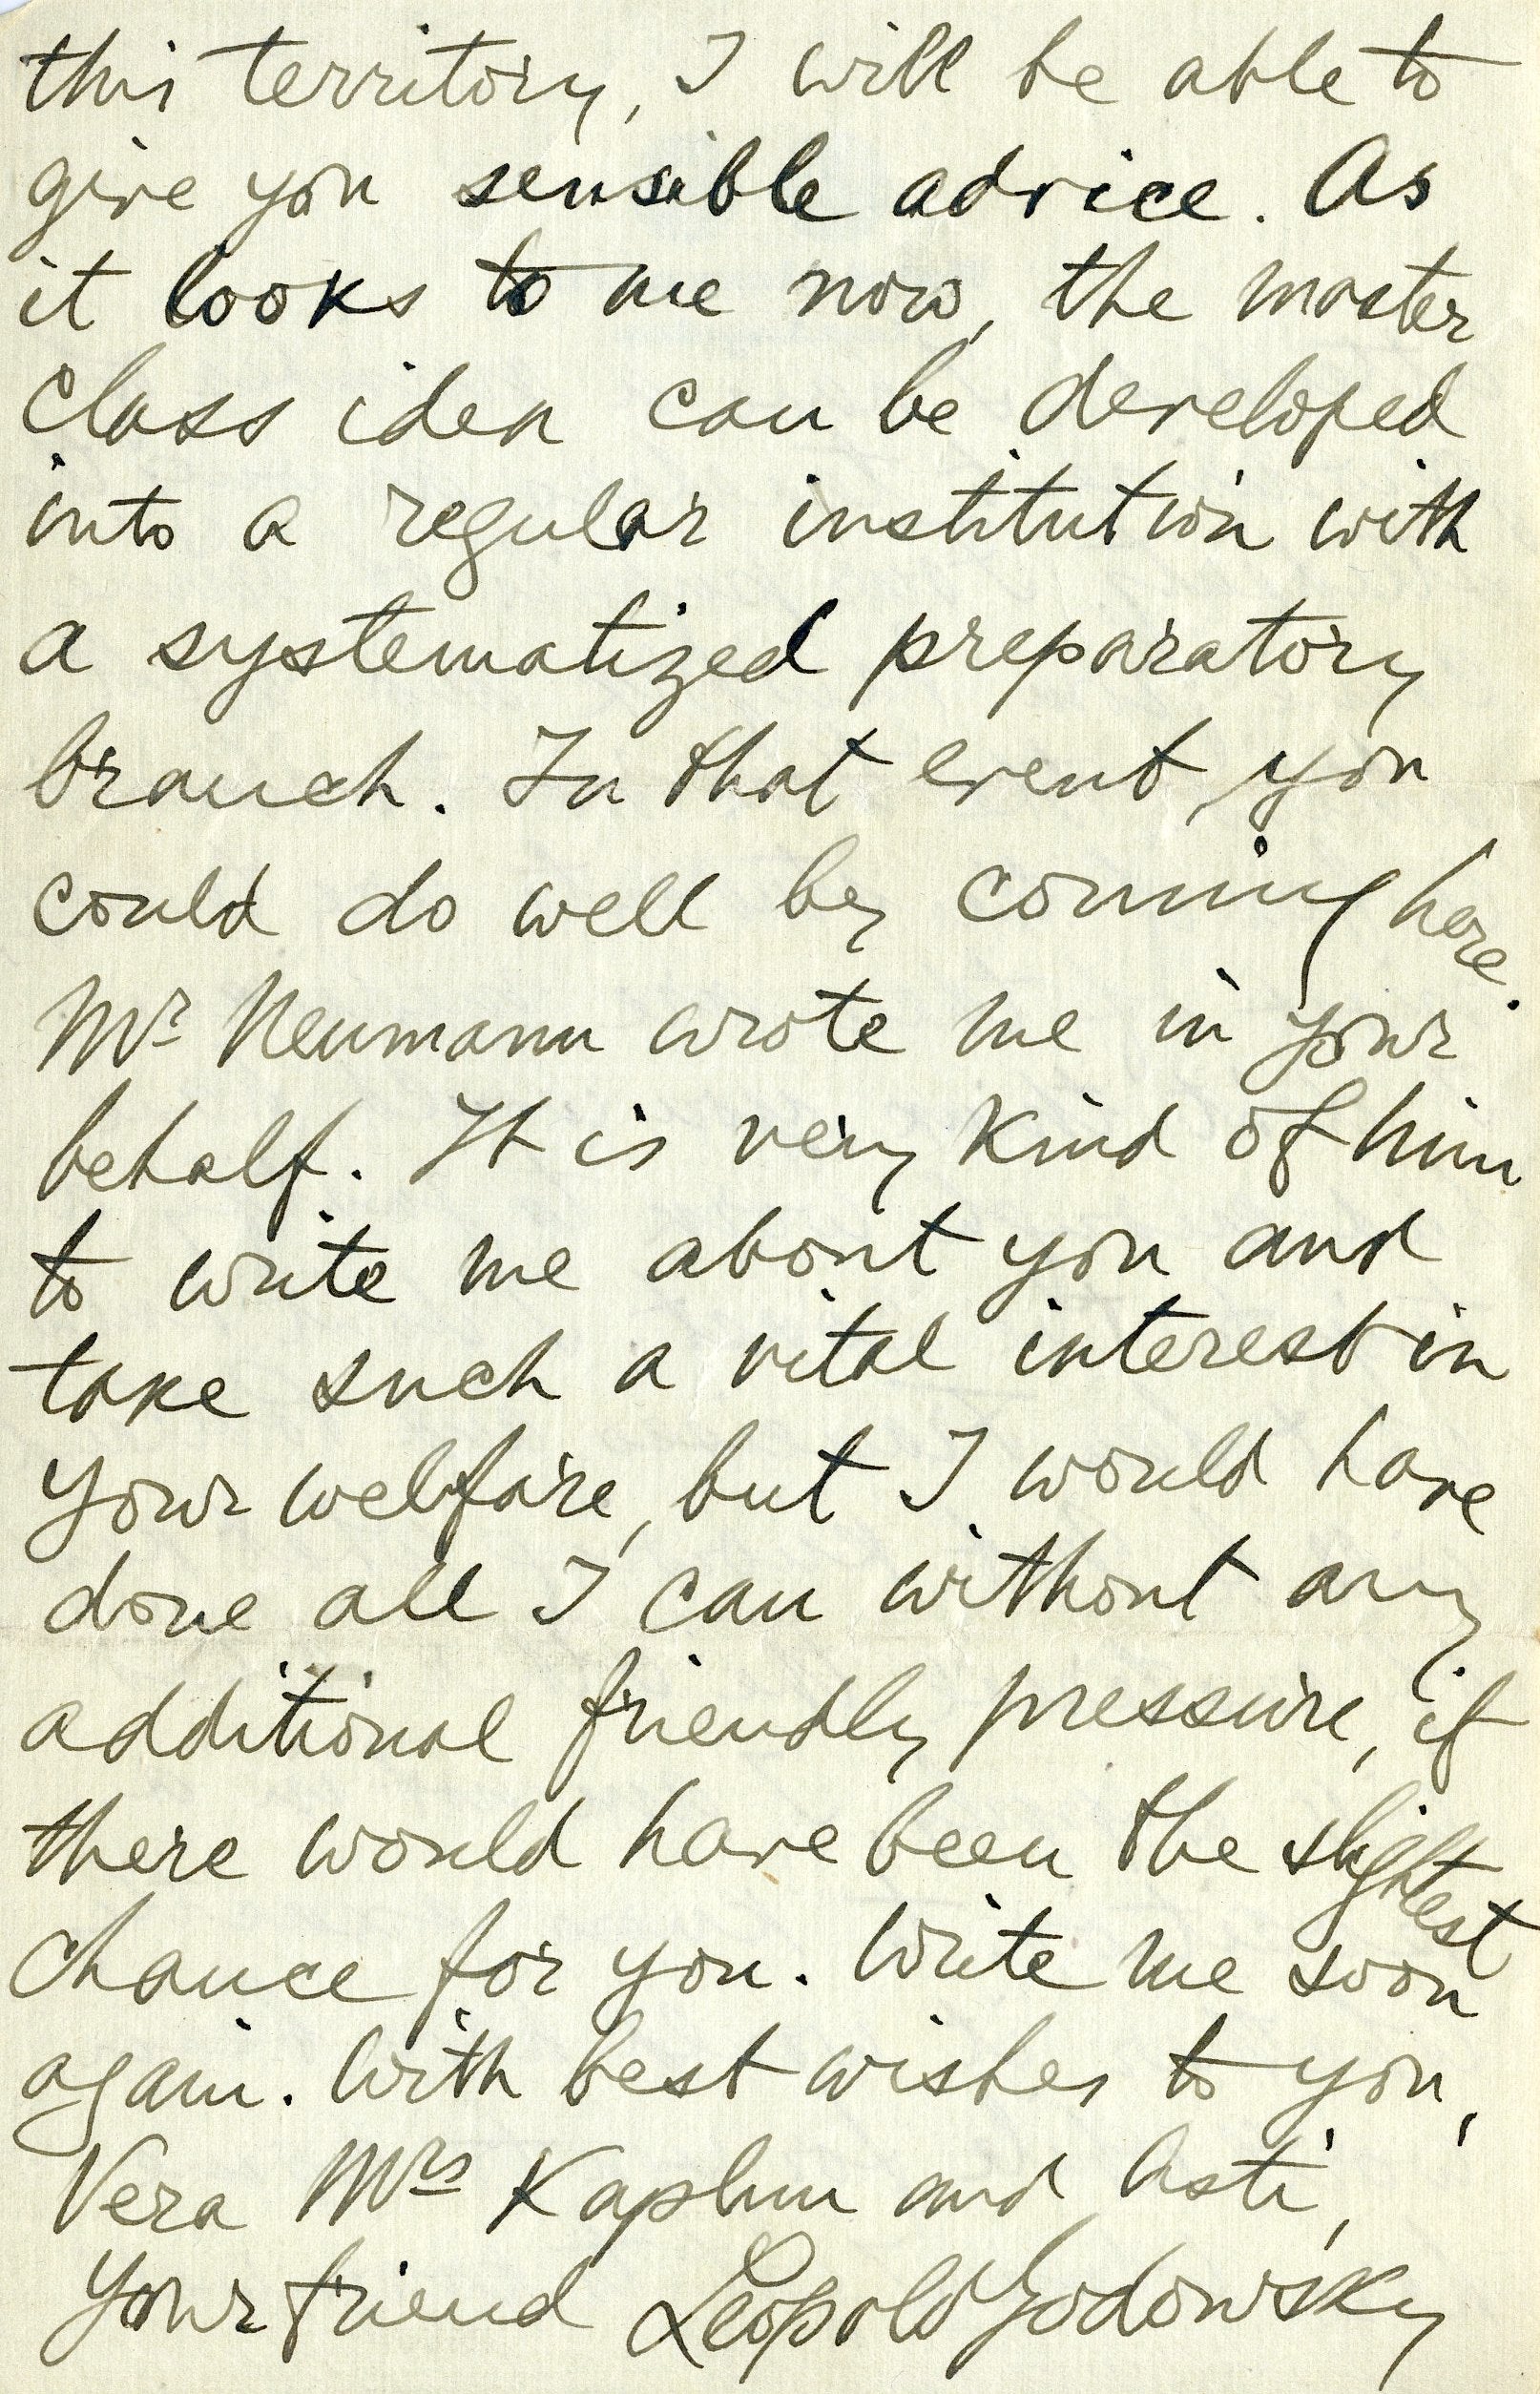 this territory, I will be able to
give you sensible advice. As
it looks to me now, the master
class idea can be developed
into a regular institution with
a systematized preparatory
branch. In that event, you
could do well by coming here.
Mr Neumann wrote me in your
behalf. It is very kind of him
to write me about you and
take such a vital interest in
your welfare, but I would have
done all I can without any
additional friendly pressure, if
there would have been the slightest
chance for you. Write me soon
again. With best wishes to you,
Vera Mrs Kaplun and Asti,
Your friend Leopold Godowsky